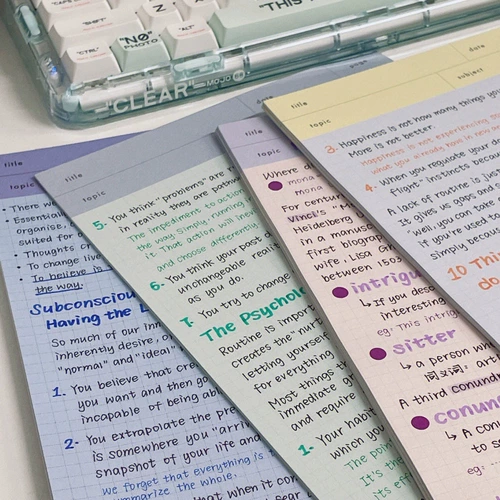 "CAPS
"SHIFT"
Z
"ALT"
"CTRL"
"N0"
PHOTO
"THIS
"CLEAR"
MOJO
title
topic
There
Essential
organise,
suited for
Thoughts
To change
To believe
the way.
Subconsciou
Having the L
So much of our inn
inherently desire, o
"normal" and "ideal"
1. You believe that cre
you want and then go
incapable of being ab
2- You extrapolate the pre
is somewhere you "arriv
snapshot of your life and
we forget that everything is
summarize the whole.
that when it con
title
topic
5. You think "problems" are r
in reality they are path
The impediment to action
the way. Simply run
it. That action will
and choose differently
6- You think your past d
unchangeable reali
as you do.
7. You try to change
The Psychol
Routine is import
creates the
letting yourself
for everything
Most things
immediate gr
and require
1- Your habit
which you
The poin
It's the
its ef
title
topic
Where d
mona
mona
For centur
Vinci's
Heidelberg
in a manus
first biograp
wife, Lisa Gh
between 1503
intrigu
↳ If you des
interesting
eg: This intrigu
sitter
↳ a person wh
词义: art
A third conun
conun
↳ A con
to s
eg:
title
date
topic
subject
3. Happiness is not how many things you
More is not better.
Happiness is not experiencing
what you already have in new
4. When you regulate your d
flight" instincts becau
A lack of routine is jus
It gives us gaps and
"well, you can take
If you're used
simply because
10 Things
do